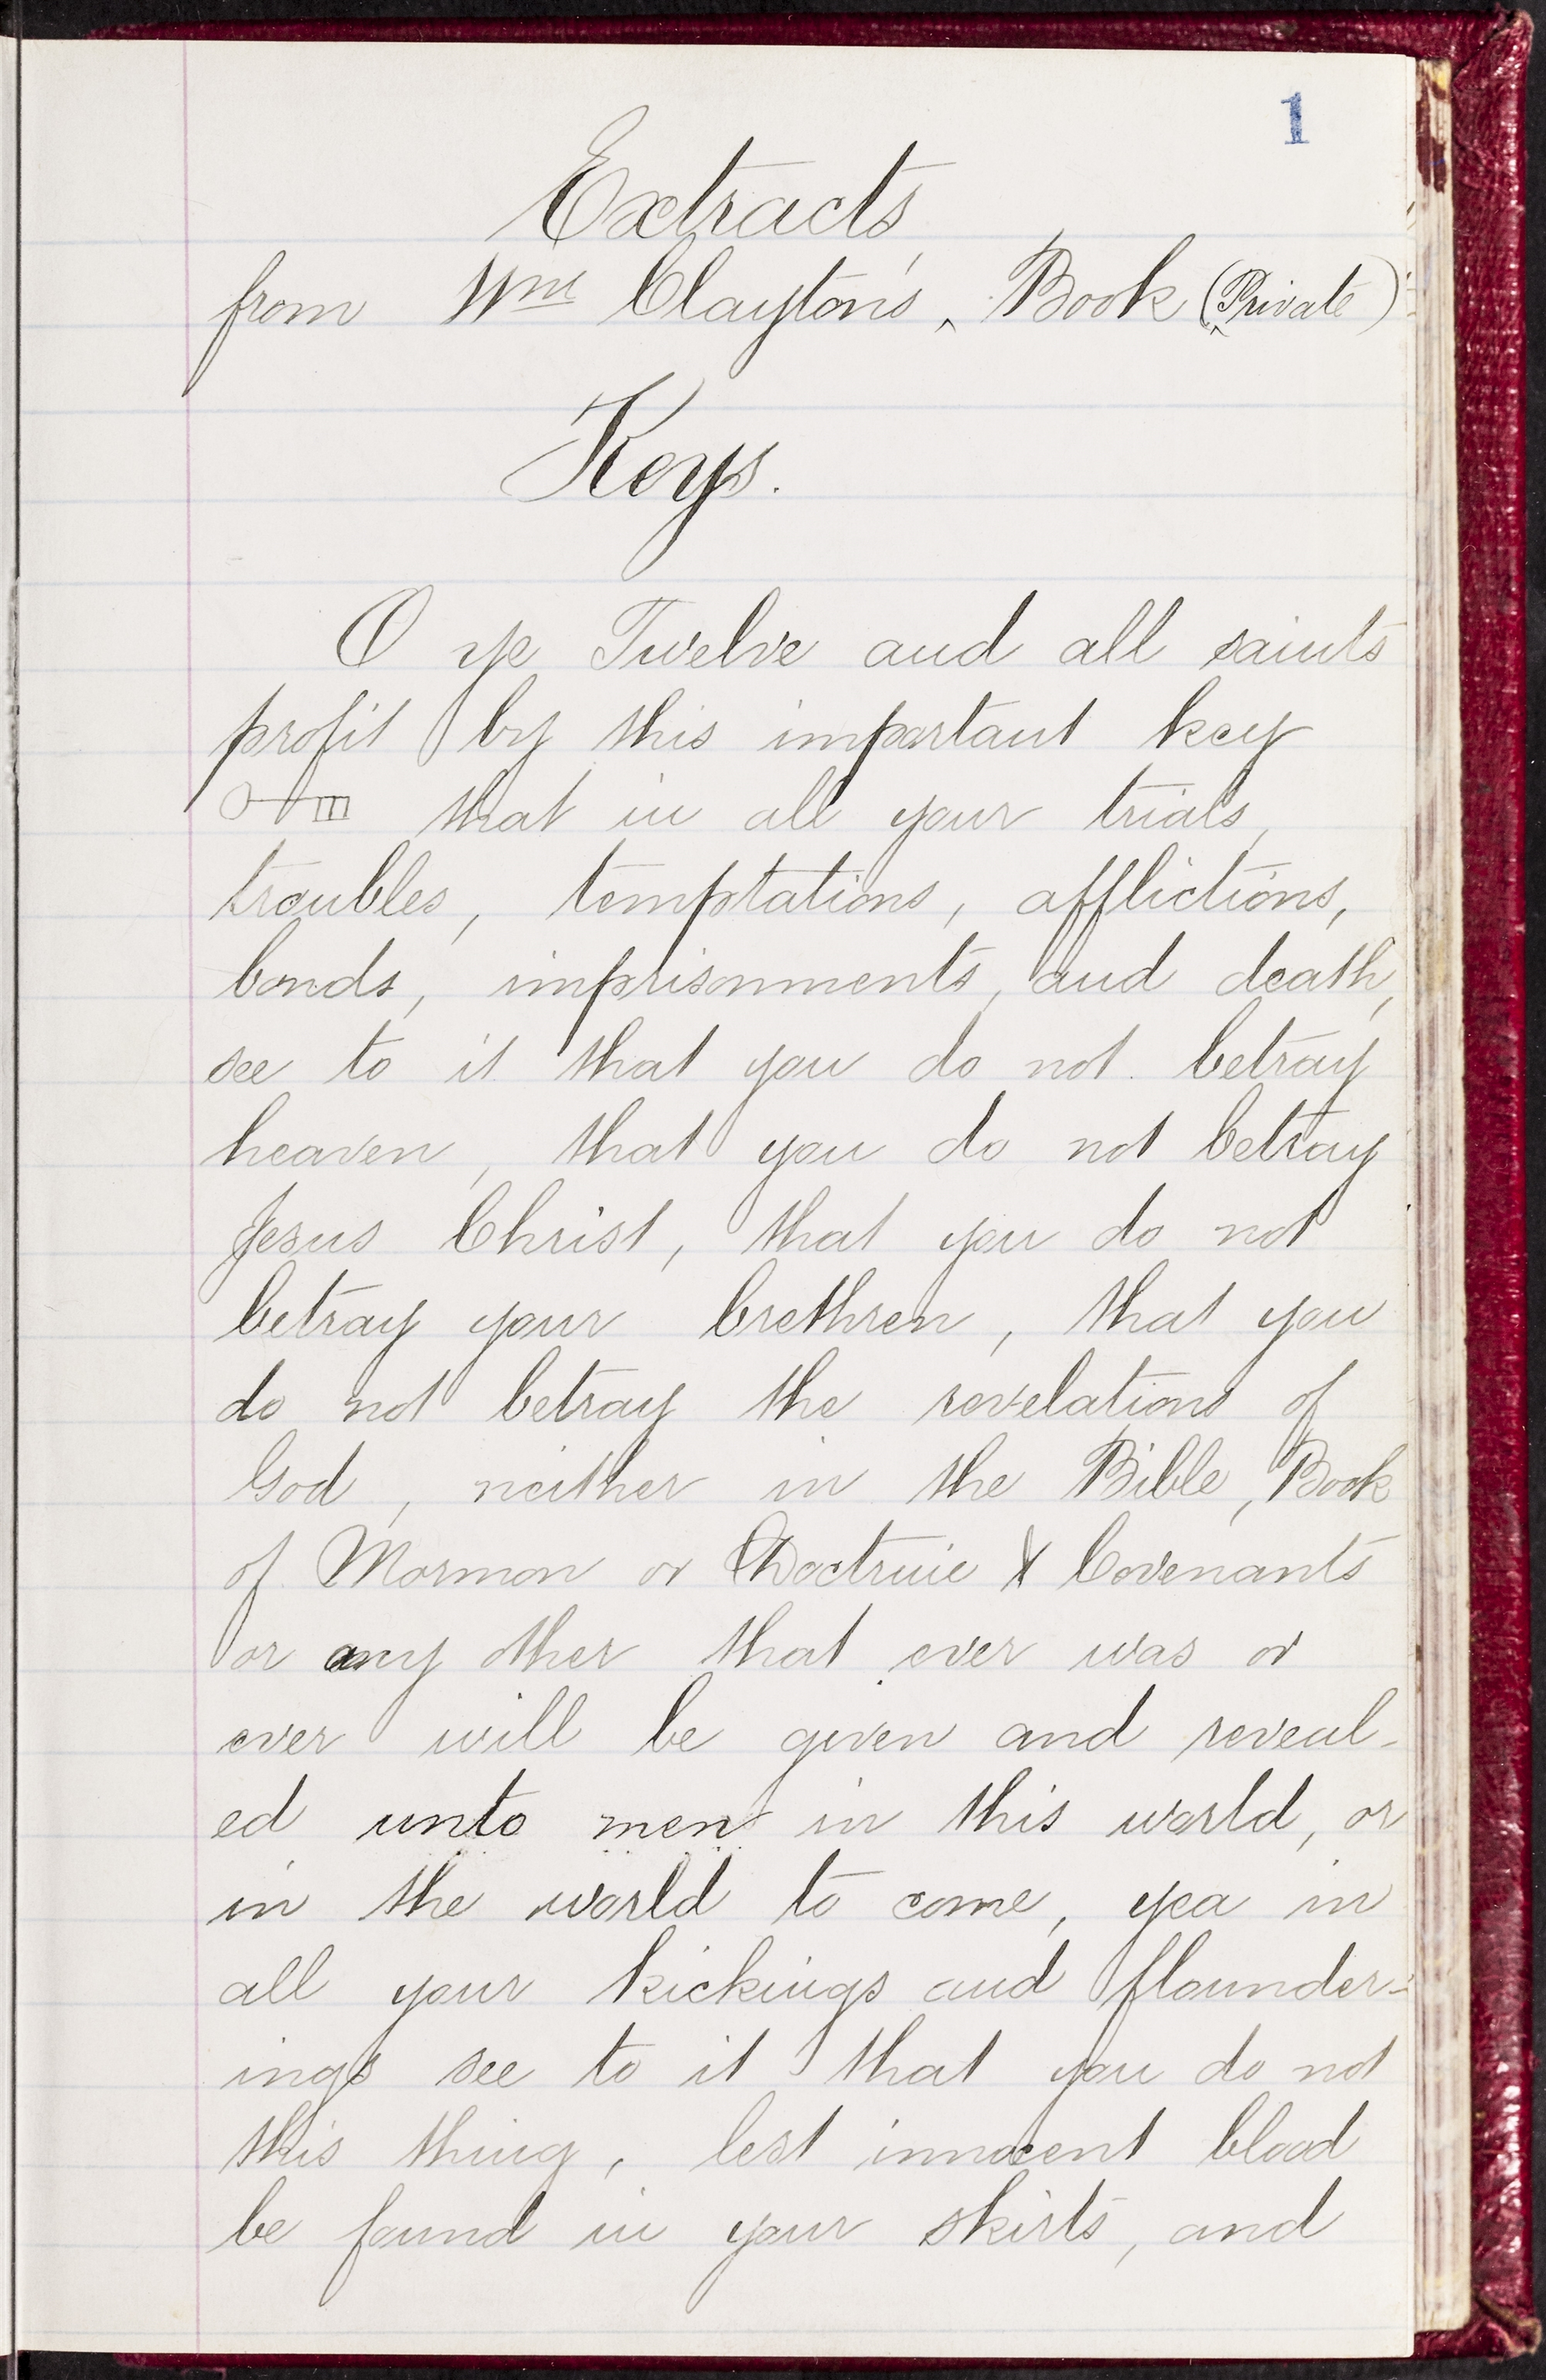 1
Extracts
from Wm Clayton's, Book (Private)
Keys.
O ye Twelve and all saints
profit by this important key
that in all your trials,
troubles, temptations, afflictions,
bonds, imprisonments, and death,
see to it that you do not betray
heaven, that you do not betray
Jesus Christ, that you do not
betray your brethren, that you
do not betray the revelations of
God, neither in the Bible, Book
of Mormon or Doctrine & Covenants
or any other that ever was or
ever will be given and reveal-
ed unto men in this world, or
in the world to come, yea in
all your kickings and flounder-
ings see to it that you do not
this thing, lest innocent blood
be found in your skirts, and